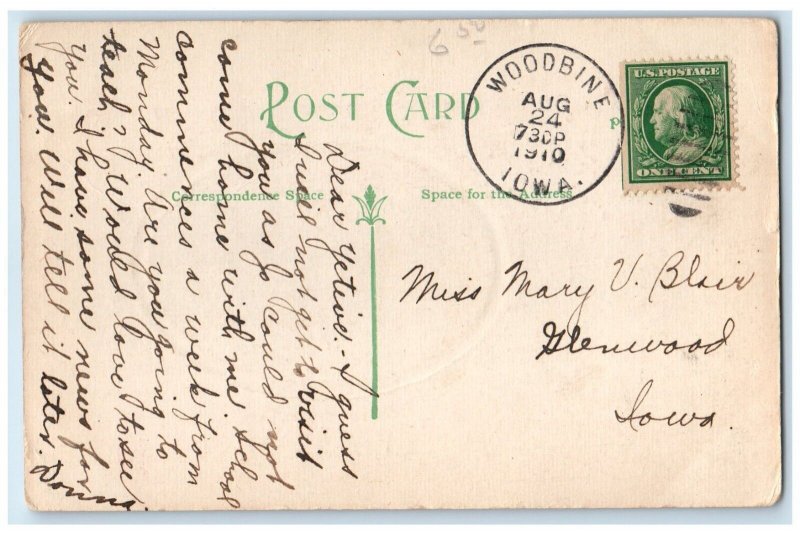 6 50
POST CARD
WOODBINE
AUG
24
730P
1910
IOWA.
U.S. POSTAGE
ONE CENT
Correspondence Space
Space for the Address
Dear Yetive. - I guess
I will not get to visit
you as I could not
come home with me. School
commences a week from
Monday. Are you going to
teach? Would love to see
you. I have some news for
you. Will tell it later. Donna.
Miss Mary V. Blair
Glenwood
Iowa.